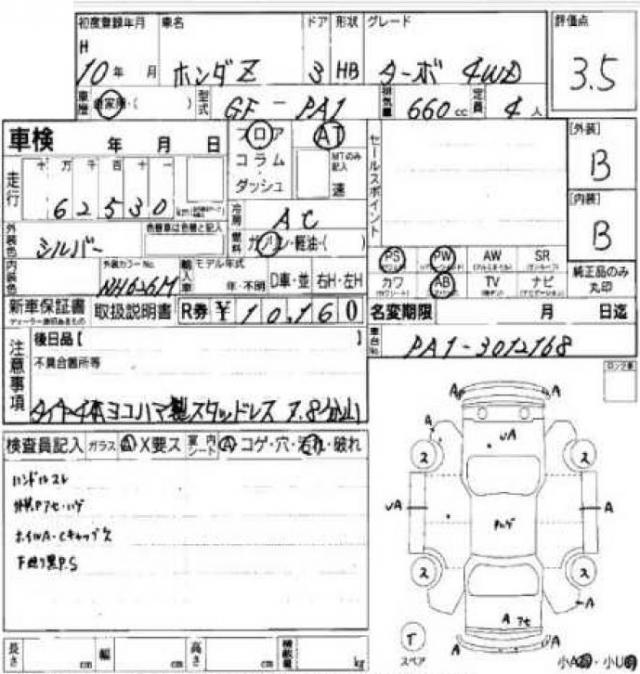 初度登録年月 車名 ドア 形状 グレード 評価点
H 10 年 月 ホンダZ 3 HB ターボ 4WD 3.5
車歴 自家用・( ) 型式 GF-PA1 排気量 660cc 定員 4人
車検 年 月 日 フロア AT セールスポイント [外装]
十 万 千 百 十 一 コラム MTのみ記入 B
走行 62530 km ダッシュ 速 [内装]
外装色 シルバー 色替車は色替と記入 冷房 AC B
燃料 ガソリン・軽油・( ) PS PW AW SR
内装色 外装カラーNo. NH626M 輸入車 モデル年式 カワ AB TV ナビ 純正品のみ丸印
年・不明 D車・並 右H・左H
新車保証書 取扱説明書 R券 ¥10,160 名変期限 月 日迄
注意事項 後日品【 】 車台No. PA1-3012168
不具合箇所等 ロング車
タイヤ4本ヨコハマ製スタッドレス 7.8分山
検査員記入 ガラス X要ス 室内シート コゲ・穴・汚れ・破れ
ハンドルスレ
外装Pアセ・ハゲ
ホイルA・Cキャップ欠
下廻り黒P.S
A A
A A
ス ス
UA
UA A
ス ス
A
A アセ
T A A
スペア
長さ cm 幅 cm 高さ cm 積載量 kg 小A・小U